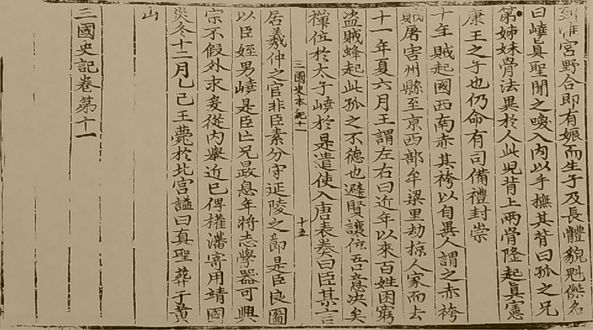 到帷宮野合即有娠而生子及長體貌魁傑名
曰嶢眞聖聞之喚入内以手撫其背曰孤之兄
弟姊妹骨法異於人此児背上兩骨隆起真憲
康王之子也仍命有司備禮封崇
十年賊起國西南赤其袴以自異人謂之赤袴
賊屠害州縣至京西部牟梁里劫掠人家而去
十一年夏六月王謂左右曰近年以來百姓困窮
盗賊蜂起此孤之不德也避賢讓位吾意决矣
禪位於太子嶢於是遣使入唐表奏曰臣某言
三國史本紀十一
十五
居羲仲之官非臣素分守延陵之節是臣良圖
以臣姪男嶢是臣亡兄晸息年將志學器可興
宗不假外求爰從内舉近已俾權藩寄用靖國
災冬十二月乙巳王薨於北宮謚曰真聖葬于黄
山
三國史記卷第十一